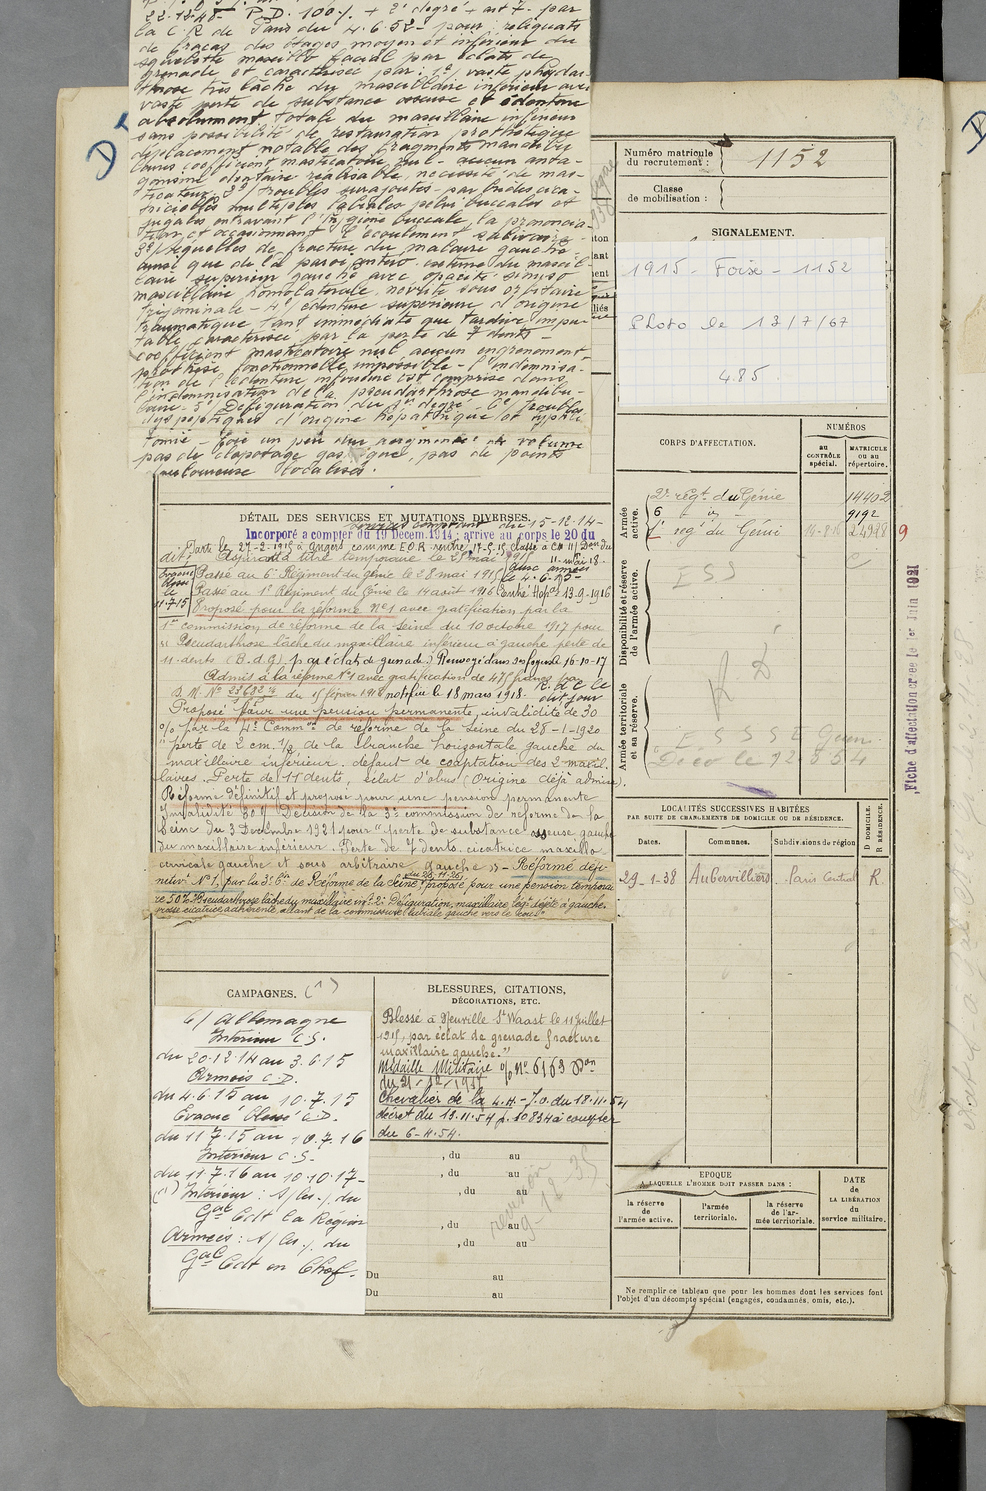 22-12-48- P.D. 100% + 2° degré + art 7. par
la C.R de Paris du 4.6.52- pour: reliquats
de fracas des étages moyen et inférieur du
squelette maxillo facial par éclats de
grenade et caractérisée par: 1° vaste pseudar-
throse très lâche du maxillaire inférieur avec
vaste perte de substance osseuse et édenture
absolument totale du maxillaire inférieur
sans possibilité de restauration prothétique
déplacement notable des fragments mandibu
laires coefficient masticatoire nul - aucun anta-
gonisme dentaire réalisable, nécessité de mas-
ticateur. 2°/ troubles surajoutés - par brides cica-
tricielles multiples labiales pelvi buccales et
jugales entravant l'hygiène buccale, la prononcia-
tion et occasionnant l'écoulement salivaire -
3°/ séquelles de fracture du malaire gauche
ainsi que de la paroi antéro externe du maxil-
laire supérieur gauche avec opacité sinuso
maxillaire homolatérale, névrite sous orbitaire
trigeminale - 4°/ édenture supérieure d'origine
traumatique tant immédiate que tardive impu-
table caractérisée par la perte de 7 dents -
coefficient masticatoire nul aucun engrenement-
prothèse fonctionnelle impossible - l'indemnisa-
tion de l'édenture inférieure est comprise dans
l'indemnisation de la pseudarthrose mandibu-
laire - 5° Défiguration du degré - 6°/ troubles
dyspeptiques d'origine hépatique et
tomie - foie un peu augmenté de volume
pas de clapotage gastrique, pas de points
douloureux localisés.
Numéro matricule du recrutement : 1152
Classe de mobilisation :
SIGNALEMENT.
1915 - Foix - 1152
Photo le 13/7/67
485
CORPS D'AFFECTATION.
NUMÉROS
au CONTRÔLE spécial.
MATRICULE ou au répertoire.
Armée active.
2e régt du Génie 14402
6 " " - 9192
1r régt du Génie 14-8-16 24928
9
Disponibilité et réserve de l'armée active.
E S S
Armée territoriale et sa réserve.
R D
Fiche d'affectation créée le 1er Juin 1921
DÉTAIL DES SERVICES ET MUTATIONS DIVERSES.
Services comptant du 15-12-14-
Incorporé à compter du 19 Décem. 1914; arrivé au corps le 20 du
dit.
Aspirant à titre temporaire le 25 mai 1915
Passé au 6e Régiment du génie le 28 mai 1915
aux armées le 4-6-15-
Evacué blessé le 11-7-15
Passé au 1er Régiment du Génie le 14 août 1916
Proposé pour la réforme N°1 avec gratification par la
1re commission de réforme de la Seine du 10 octobre 1917 pour
" Pseudarthrose lâche du maxillaire inférieur à gauche perte de
11 dents (B.d.G) par éclat de grenade) Renvoyé dans ses foyers le 16-10-17
Admis à la réforme N°1 avec gratification de 475 francs par
D.M. N° du 15 février 1918 notifiée le 18 mars 1918. R.d.C. le dit jour
Proposé pour une pension permanente, invalidité de 30
% par la 4e Common de réforme de la Seine du 28-1-1920
" perte de 2 cm. 1/2 de la branche horizontale gauche du
maxillaire inférieur. défaut de coaptation des 2 maxil.
laires. Perte de 11 dents, éclat d'obus (Origine déjà admise).
Réformé définitif et proposé pour une pension permanente
Invalidité 30% Décision de la 3e commission de réforme de la
Seine du 3 Décembre 1921 pour " perte de substance osseuse gauche
du maxillaire inférieur. Perte de 4 dents. cicatrice maxillo
cervicale gauche et sous arbitraire gauche " - Réformé défi-
nitivt N°1, par la 3e Con de Réforme de la Seine du 25-11-25, proposé pour une pension temporai
re 50%. 1° Pseudarthrose lâche du maxillaire infr. 2° Défiguration, maxillaire légt dejeté à gauche,
grosse cicatrice adhérente allant de la commissure labiale gauche vers le cou."
LOCALITÉS SUCCESSIVES HABITÉES
PAR SUITE DE CHANGEMENTS DE DOMICILE OU DE RÉSIDENCE.
Dates. Communes. Subdivisions de région D DOMICILE. R RÉSIDENCE.
29-1-38 Aubervilliers Paris Central R.
CAMPAGNES. (1)
C/ Allemagne
Intérieur C.S.
du 20-12-14 au 3.6.15
Armées C.D.
du 4.6.15 au 10.7.15
Evacué blessé C.D.
du 11 7.15 au 10.7.16
Intérieur C.S-
du 11.7.16 au 10.10.17-
(1) Intérieur : du
Gal Cdt la Région
Armées : du
Gal Cdt en Chef.
BLESSURES, CITATIONS,
DÉCORATIONS, ETC.
Blessé à Neuville St Waast le 11 juillet
1915, par éclat de grenade fracture
maxillaire gauche."
Médaille Militaire N° 6163
Chevalier de la L.H.- J.O. du 18.11.54
décret du 13.11.54 p. 10834 à compter
du 6-4.54.
, du au
, du au
, du au
, du au
, du au
Du au
Du au
révision
9-12-35
EPOQUE
A LAQUELLE L'HOMME DOIT PASSER DANS :
la réserve de l'armée active.
l'armée territoriale.
la réserve de l'armée territoriale.
DATE de LA LIBÉRATION du service militaire.
Ne remplir ce tableau que pour les hommes dont les services font
l'objet d'un décompte spécial (engagés, condamnés, omis, etc.).